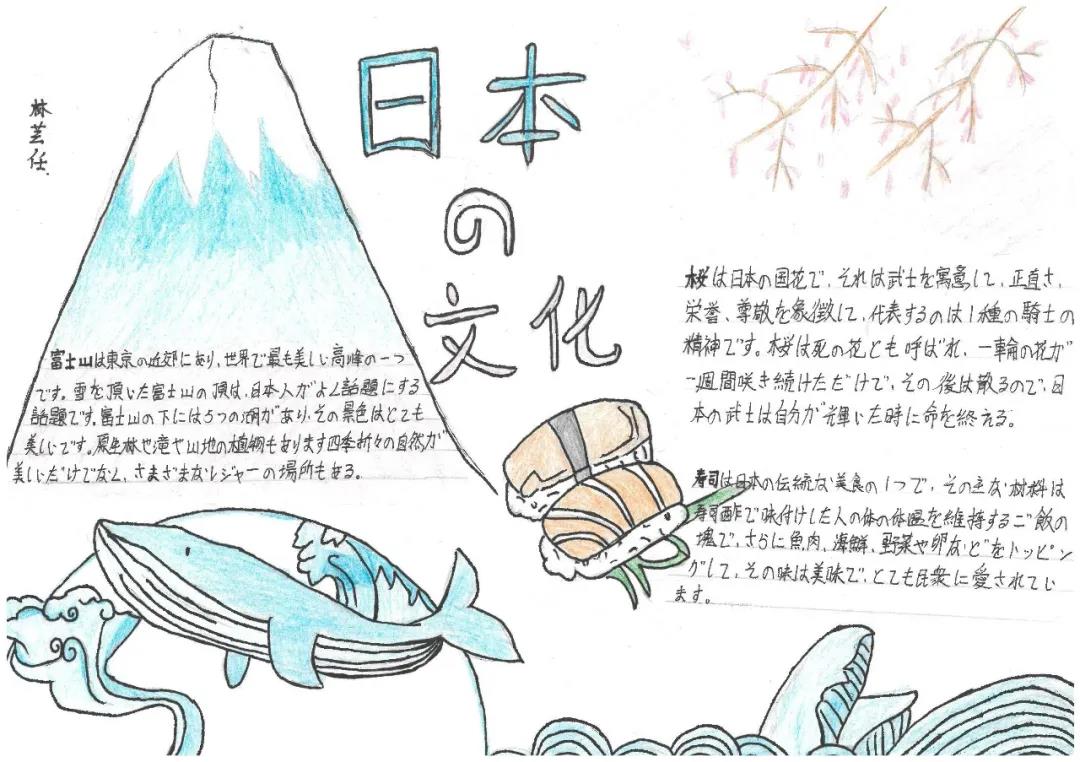 林芸任
日本
の
文化
富士山は東京の近郊にあり、世界で最も美しい高峰の一つ
です。雪を頂いた富士山の頂は、日本人がよく話題にする
話題です。富士山の下には5つの湖があり、その景色はとても
美しいです。原生林や滝や山地の植物もあります四季折々の自然が
美しいだけでなく、さまざまなレジャーの場所もある。
桜は日本の国花で、それは武士を寓意して、正直さ、
栄誉、尊敬を象徴して、代表するのは1種の騎士の
精神です。桜は死の花とも呼ばれ、一輪の花が
一週間咲き続けただけで、その後は散るので、日
本の武士は自分が輝いた時に命を終える。
寿司は日本の伝統な美食の1つで、その主な材料は
寿司酢で味付けした人の体の体温を維持するご飯の
塊で、さらに魚肉、海鮮、野菜や卵などをトッピン
グして、その味は美味で、とても民衆に愛されてい
ます。